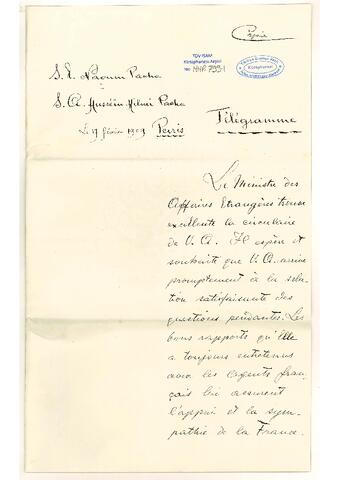 Copie
TDV İSAM
Kütüphanesi Arşivi
No HHP.7951
S. E. Naoum Pacha
S. A. Hussein Hilmi Pacha
Le 17 février 1909 Paris
Télégramme
Le Ministre des
Affaires Etrangères trouve
excellente la circulaire
de V. A. Il espère et
souhaite que V. A. arrive
promptement à la solu-
tion satisfaisante des
questions pendantes. Les
bons rapports qu'Elle
a toujours entretenus
avec les Agents fran-
çais lui assurent
l'appui et la sym-
pathie de la France.